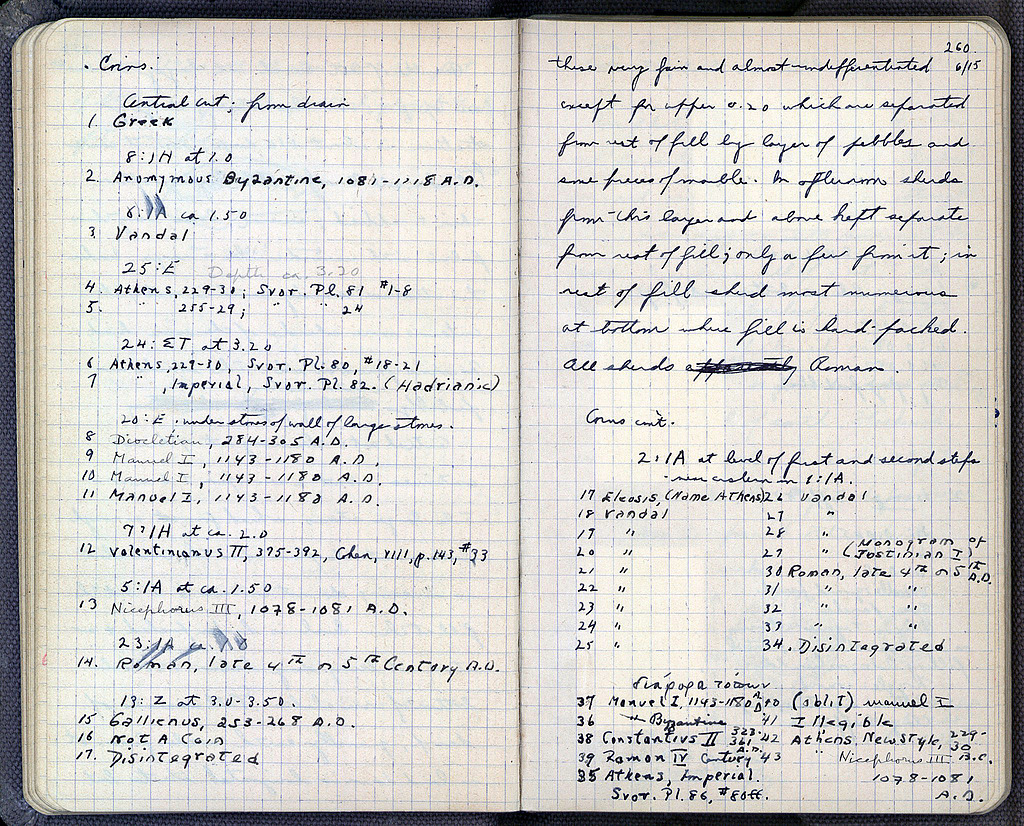 Coins.
Central cut; from drain
1. Greek
8:1H at 1.0
2. Anonymous Byzantine, 1081-1118 A.D.
ca 1.50
3 Vandal
25:E Depth ca. 3.20
4. Athens, 229-30; Svor. Pl. 81 #1-8
5. " 255-29; " " 24
24: ΣT at 3.20
6 Athens, 229-30, Svor. Pl. 80, #18-21
7 ", Imperial, Svor. Pl. 82. (Hadrianic)
20:E, under stones of wall of large stones.
8 Diocletian, 284-305 A.D.
9 Manuel I, 1143-1180 A.D.
10 Manuel I, 1143-1180 A.D.
11 Manuel I, 1143-1180 A.D.
at ca. 2.0
12 Valentinianus II, 375-392, Cohen, VIII, p. 143, #33
5:1A at ca. 1.50
13 Nicephorus III, 1078-1081 A.D.
23:1A ca.
14. Roman, late 4th or 5th Century A.D.
13: Z at 3.0-3.50.
15 Gallienus, 253-268 A.D.
16 Not A Coin
17. Disintegrated
260
6/15
these very fain and almost undifferentiated
except for upper 0.20 which are separated
from rest of fill by layer of pebbles and
some pieces of marble. In afternoon sherds
from this layer and above kept separate
from rest of fill; only a few from it; in
rest of fill sherd most numerous
at bottom where fill is hard-packed.
All sherds Roman.
Coins cont.
2:1A at level of first and second steps
near cistern in 1:1A.
17 Eleusis, (Name Athens) 26 Vandal
18 Vandal 27 "
19 " 28 "
20 " 29 " (Monogram of Justinian I)
21 " 30 Roman, late 4th or 5th A.D.
22 " 31 " "
23 " 32 " "
24 " 33 " "
25 " 34. Disintegrated
διάφορα τόπων
37 Manuel I, 1143-1180 A.D. 40 (split) Manuel I
36 " Byzantine 41 Illegible
38 Constantius II 323-361 A.D. 42 Athens, New Style, 229-30 B.C.
39 Roman IV Century 43 Nicephorus III
35 Athens, Imperial. 1078-1081
Svor. Pl. 86, #8off. A.D.